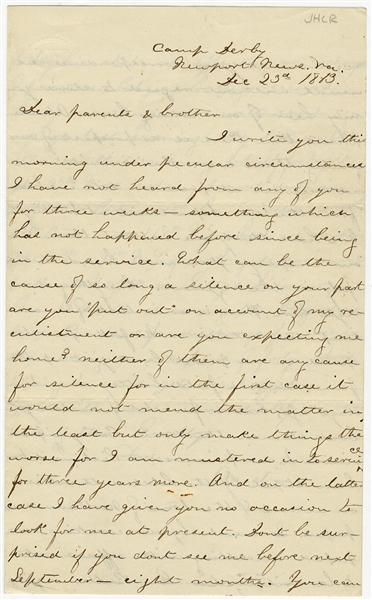 JHLR
Camp Derby
Newport News, Va.
Dec 23d 1813.
Dear parents & brother
I write you this
morning under pecular circumstances
I have not heard from any of you
for three weeks — something which
has not happined before since being
in the service. What can be the
cause of so long a silence on your part
are you "put out" on account of my re
enlistment or are you expecting me
home? neither of them are any cause
for silence for in the first case it
would not mend the matter in
the least but only make things the
worse for I am mustered in to service
for three years more. And on the latter
case I have given you no occasion to
look for me at present. Dont be sur-
prised if you dont see me before next
September — eight months. You can